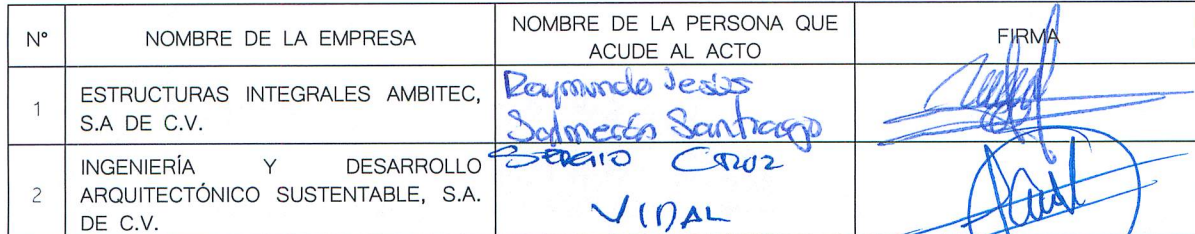 N° NOMBRE DE LA EMPRESA NOMBRE DE LA PERSONA QUE ACUDE AL ACTO FIRMA
1 ESTRUCTURAS INTEGRALES AMBITEC, S.A DE C.V.
Raymundo Jesús
Salmerón Santiago
2 INGENIERÍA Y DESARROLLO
ARQUITECTÓNICO SUSTENTABLE, S.A.
DE C.V.
SERGIO CRUZ
VIDAL